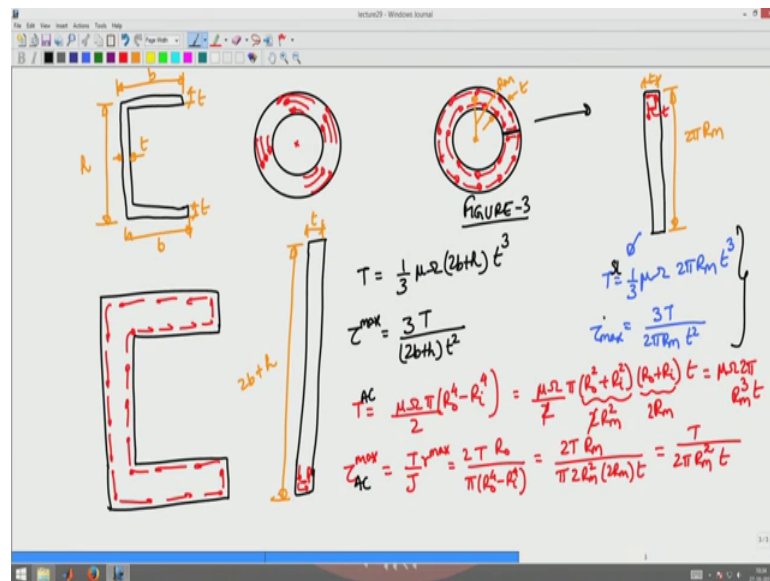 lecture29 - Windows Journal
File Edit View Insert Actions Tools Help
Page Width
B I
b
t
h
t
t
b
Rm
t
FIGURE-3
t
t
2πRm
t
2b+h
T = 1/3 μΩ(2b+h) t³
τ^max = 3T / (2b+h)t²
T = 1/3 μΩ 2πRm t³
τmax = 3T / 2πRm t²
T^AC = μΩπ(Ro⁴-Ri⁴) / 2 = μΩ/2 π(Ro²+Ri²)(Ro+Ri) t = μΩ2π Rm³t
2Rm² 2Rm
τ^max AC = T/J r^max = 2T Ro / π(Ro⁴-Ri⁴) = 2T Rm / π2Rm²(2Rm)t = T / 2πRm² t
3/3